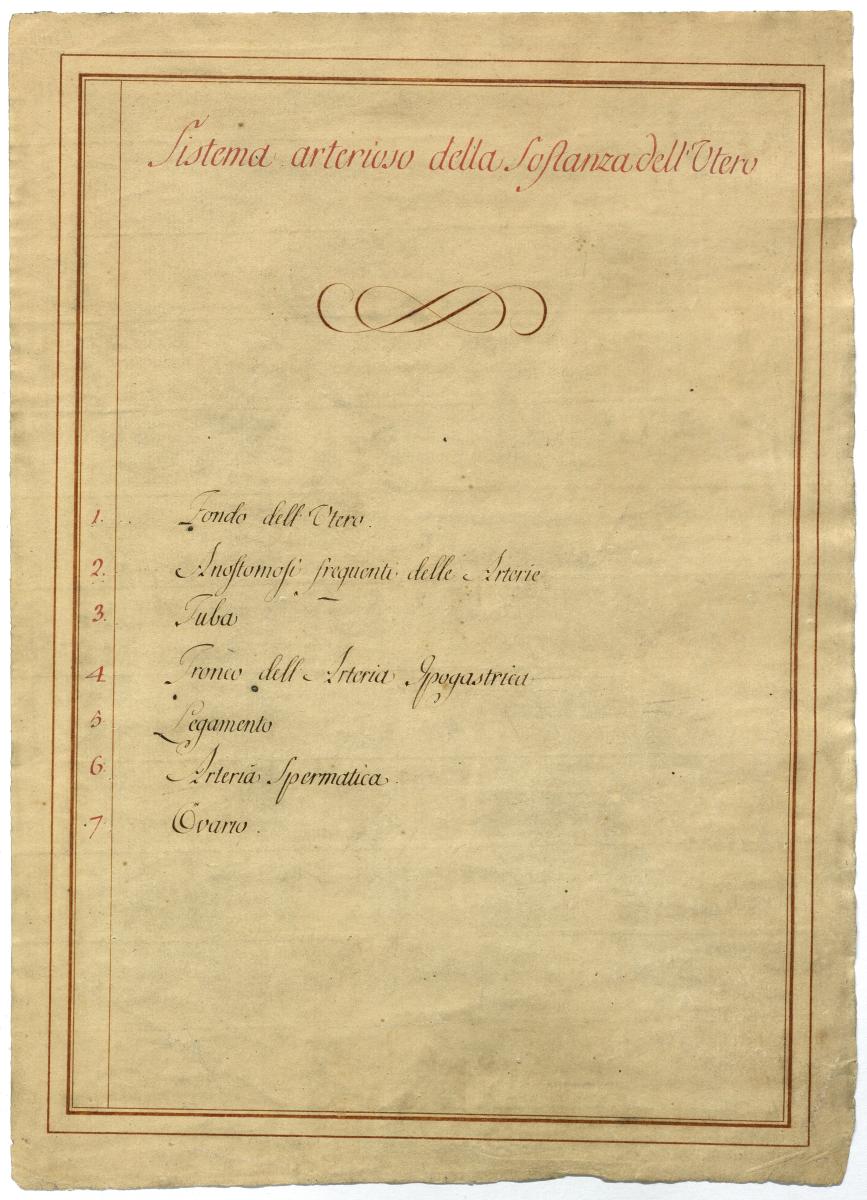 Sistema arterioso della Sostanza dell'Utero
1. Fondo dell'Utero.
2. Anostomosi frequenti delle Arterie
3. Tuba
4 Tronco dell'Arteria Ipogastrica
5 Legamento
6. Arteria Spermatica.
7. Ovario.